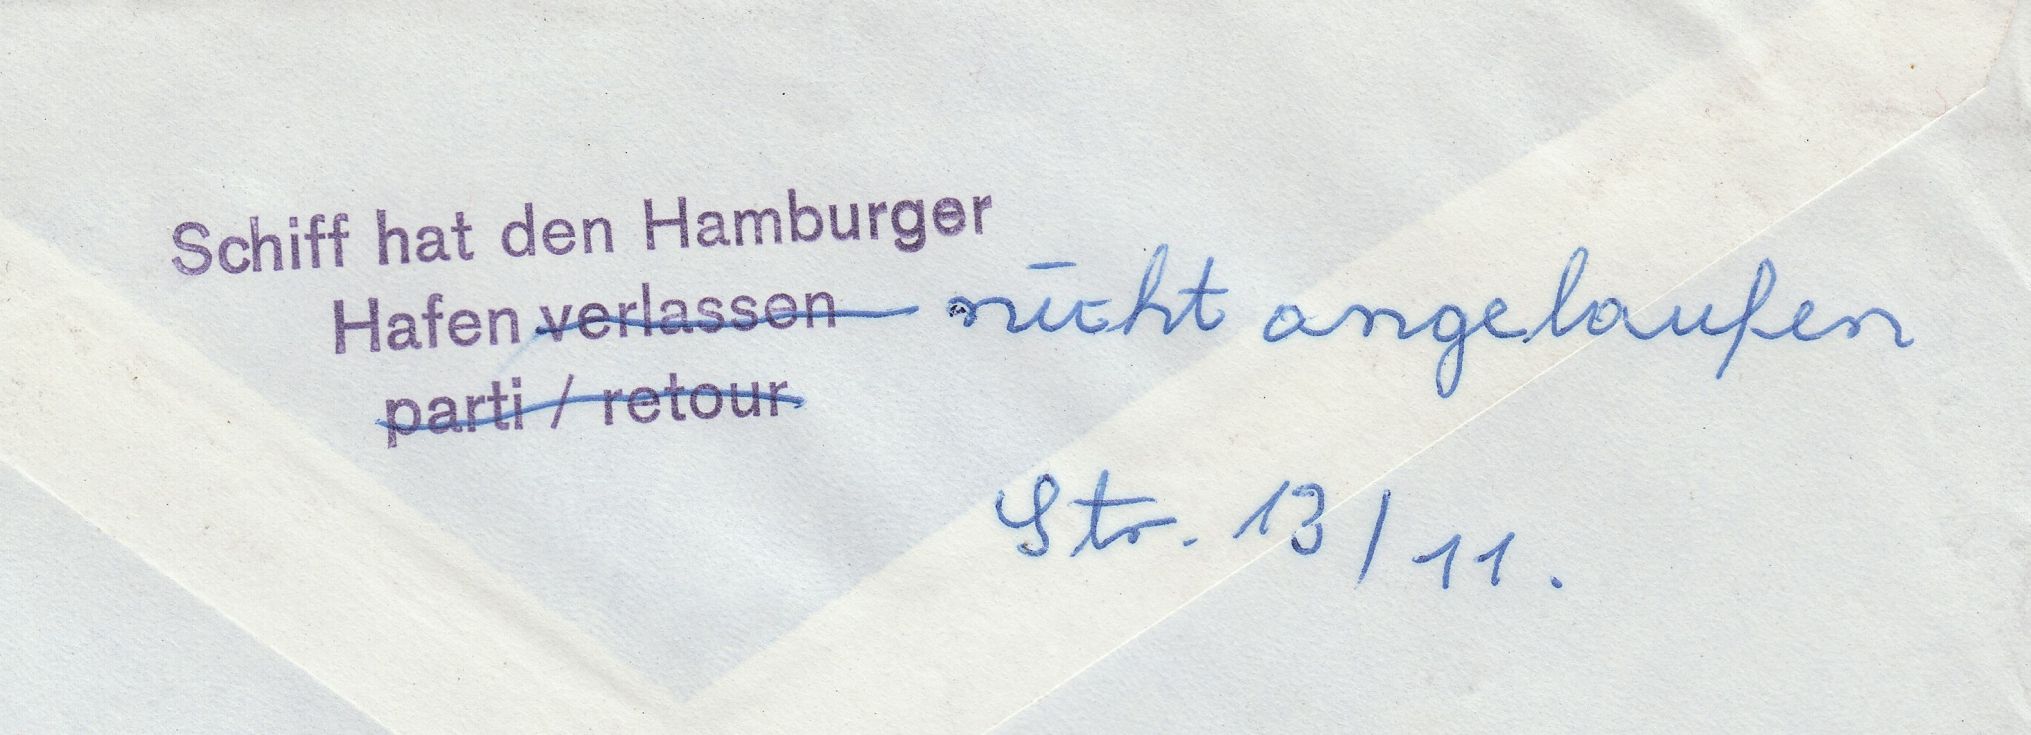 Schiff hat den Hamburger
Hafen verlassen nicht angelaufen
parti / retour
Str. 13/11.